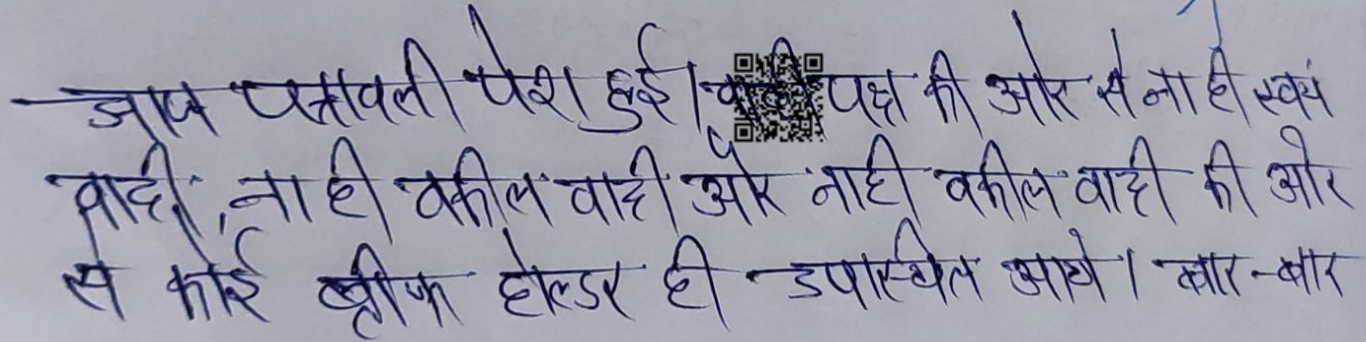 आज पत्रावली पेश हुई। वादी पक्ष की ओर से ना ही स्वयं
वादी, ना ही वकील वादी और नाही वकील वादी की ओर
से कोई ब्रीफ होल्डर ही उपस्थित आये। बार-बार